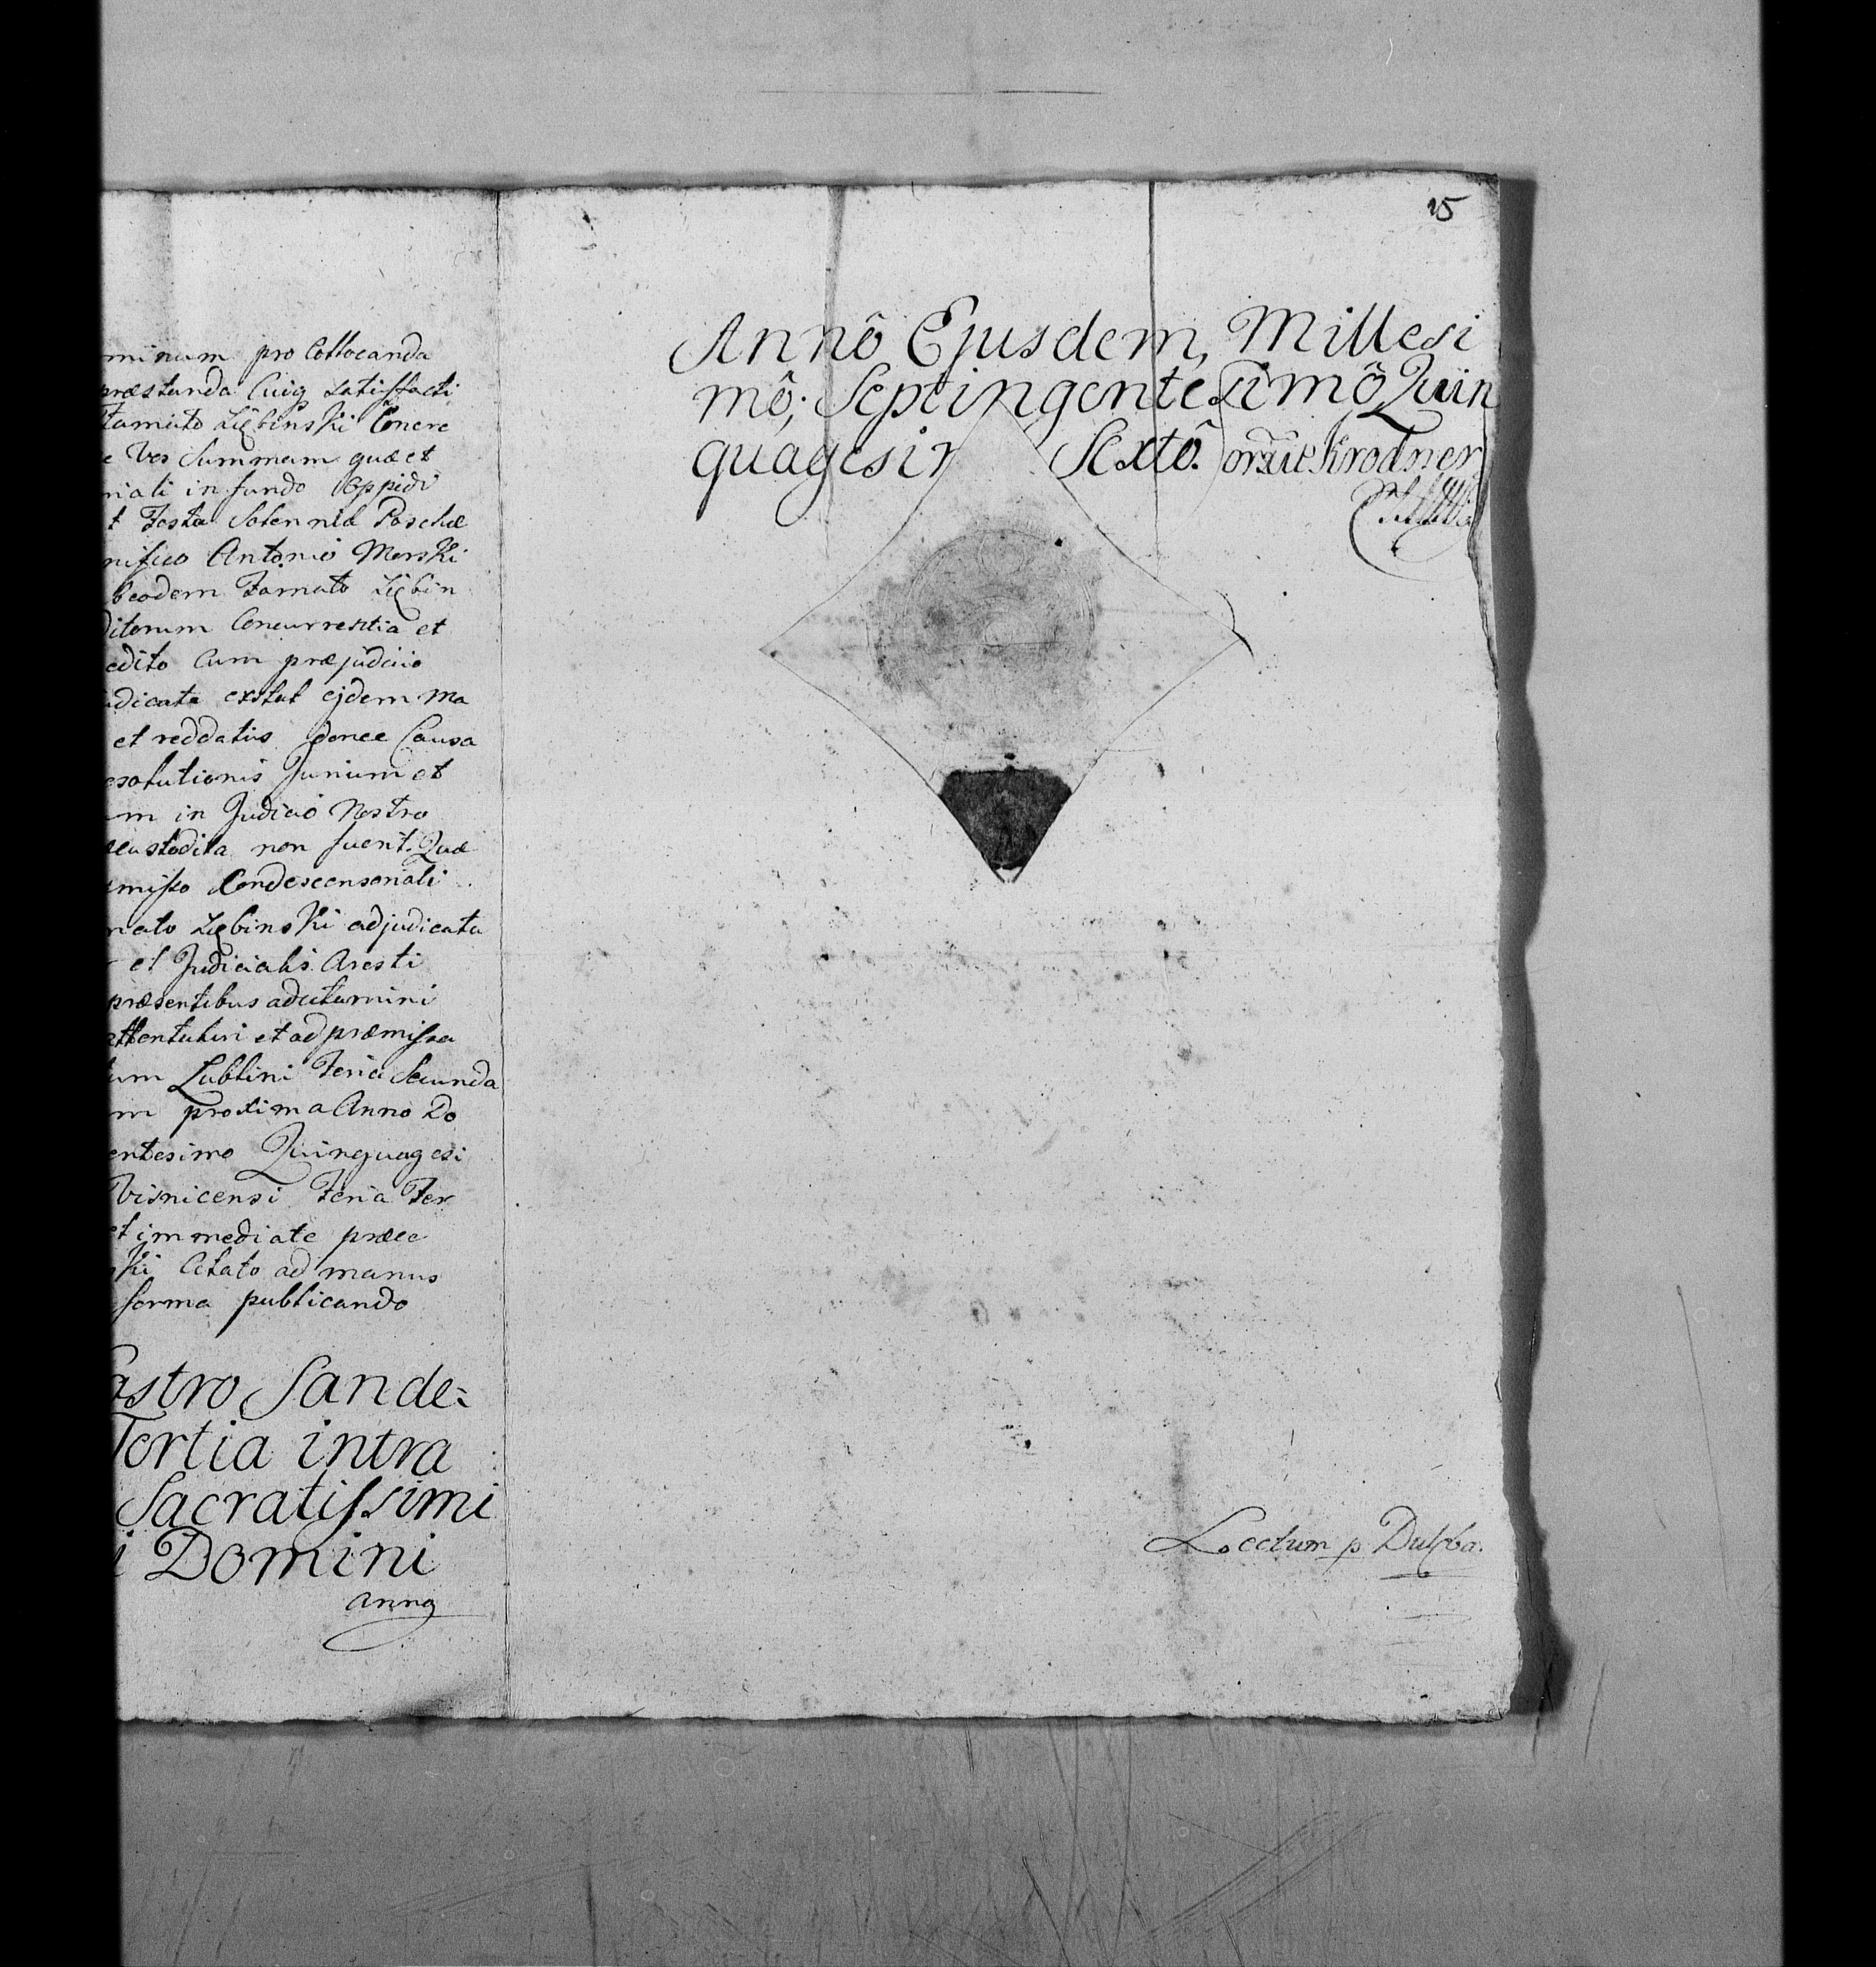 minum pro Collocanda
præstanda Cuiq satisfacti
Ziębinski Genere
Vos Summam quæ et
riali in fundo Oppidi
t Festa Solennia Paschæ
nifico Antonio Morski
beodem Famato Ziębin
ditorum Concurrentia et
edito Cum præjudicio
udicata extitit ejdem Ma
et reddatis donec Causa
esolutionis Jurium et
m in Judicio Nostro
custodita non fuerit. Quæ
misso Condescensoriali
mato Ziębinski adjudicata
et Judicialis Aresti
præsentibus adcitamini
attentaturi et ad præmissa
um Lublini Feria Secunda
m proxima Anno Do
entesimo Quinquagesi
Visnicensi Feria Ter
et immediate præce
ski Citato ad manus
forma publicando
astro Sande:
Tertia intra
Sacratissimi
i Domini
anno
15
Annô Ejusdem, Millesi
mô; Septingentesimô Quin
quagesim Sextô.
Lectum p Dulỏba.